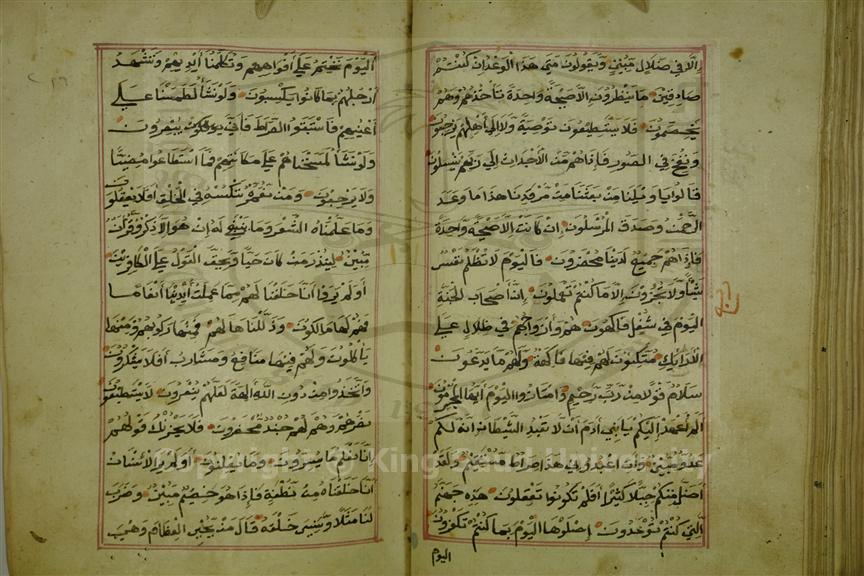 إلا في ضلال مبين ويقولون متى هذا الوعد إن كنتم
صادقين ما ينظرون إلا صيحة واحدة تأخذهم وهم
يخصمون فلا يستطيعون توصية ولا إلى أهلهم يرجعون
ونفخ في الصور فإذا هم من الأجداث إلى ربهم ينسلون
قالوا يا ويلنا من بعثنا من مرقدنا هذا ما وعد
الرحمن وصدق المرسلون إن كانت إلا صيحة واحدة
فإذا هم جميع لدينا محضرون فاليوم لا تظلم نفس
شيئا ولا تجزون إلا ما كنتم تعملون إن أصحاب الجنة
اليوم في شغل فاكهون هم وأزواجهم في ظلال على
الأرائك متكئون لهم فيها فاكهة ولهم ما يدعون
سلام قولا من رب رحيم وامتازوا اليوم أيها المجرمون
ألم أعهد إليكم يا بني آدم أن لا تعبدوا الشيطان إنه لكم
عدو مبين وأن اعبدوني هذا صراط مستقيم ولقد
أضل منكم جبلا كثيرا أفلم تكونوا تعقلون هذه جهنم
التي كنتم توعدون اصلوها اليوم بما كنتم تكفرون
اليوم
اليوم نختم على أفواههم وتكلمنا أيديهم وتشهد
أرجلهم بما كانوا يكسبون ولو نشاء لطمسنا على
أعينهم فاستبقوا الصراط فأنى يبصرون
ولو نشاء لمسخناهم على مكانتهم فما استطاعوا مضيا
ولا يرجعون ومن نعمره ننكسه في الخلق أفلا يعقلون
وما علمناه الشعر وما ينبغي له إن هو إلا ذكر وقرآن
مبين لينذر من كان حيا ويحق القول على الكافرين
أولم يروا أنا خلقنا لهم مما عملت أيدينا أنعاما
فهم لها مالكون وذللناها لهم فمنها ركوبهم ومنها
يأكلون ولهم فيها منافع ومشارب أفلا يشكرون
واتخذوا من دون الله آلهة لعلهم ينصرون لا يستطيعون
نصرهم وهم لهم جند محضرون فلا يحزنك قولهم
إنا نعلم ما يسرون وما يعلنون أولم ير الإنسان
أنا خلقناه من نطفة فإذا هو خصيم مبين وضرب
لنا مثلا ونسي خلقه قال من يحيي العظام وهي
Copyright © King Saud University